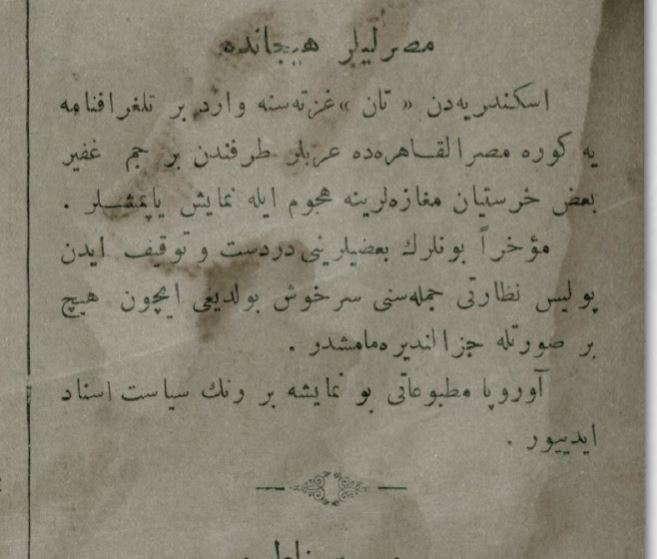 مصرلیلر هیجانده
اسکندریه‌دن « تان » غزته‌سنه وارد بر تلغرافنامه
یه کوره مصر القاهره‌ده عربلر طرفندن بر جم غفیر
بعض خرستیان مغازه‌لرینه هجوم ایله نمایش یاپمشلر .
مؤخراً بونلرك بعضیلرینی دردست و توقیف ایدن
پولیس نظارتی جمله‌سنی سرخوش بولدیغی ایچون هیچ
بر صورتله جزالندیره‌مامشدر .
آوروپا مطبوعاتی بو نمایشه بر رنك سیاست اسناد
ایدییور .